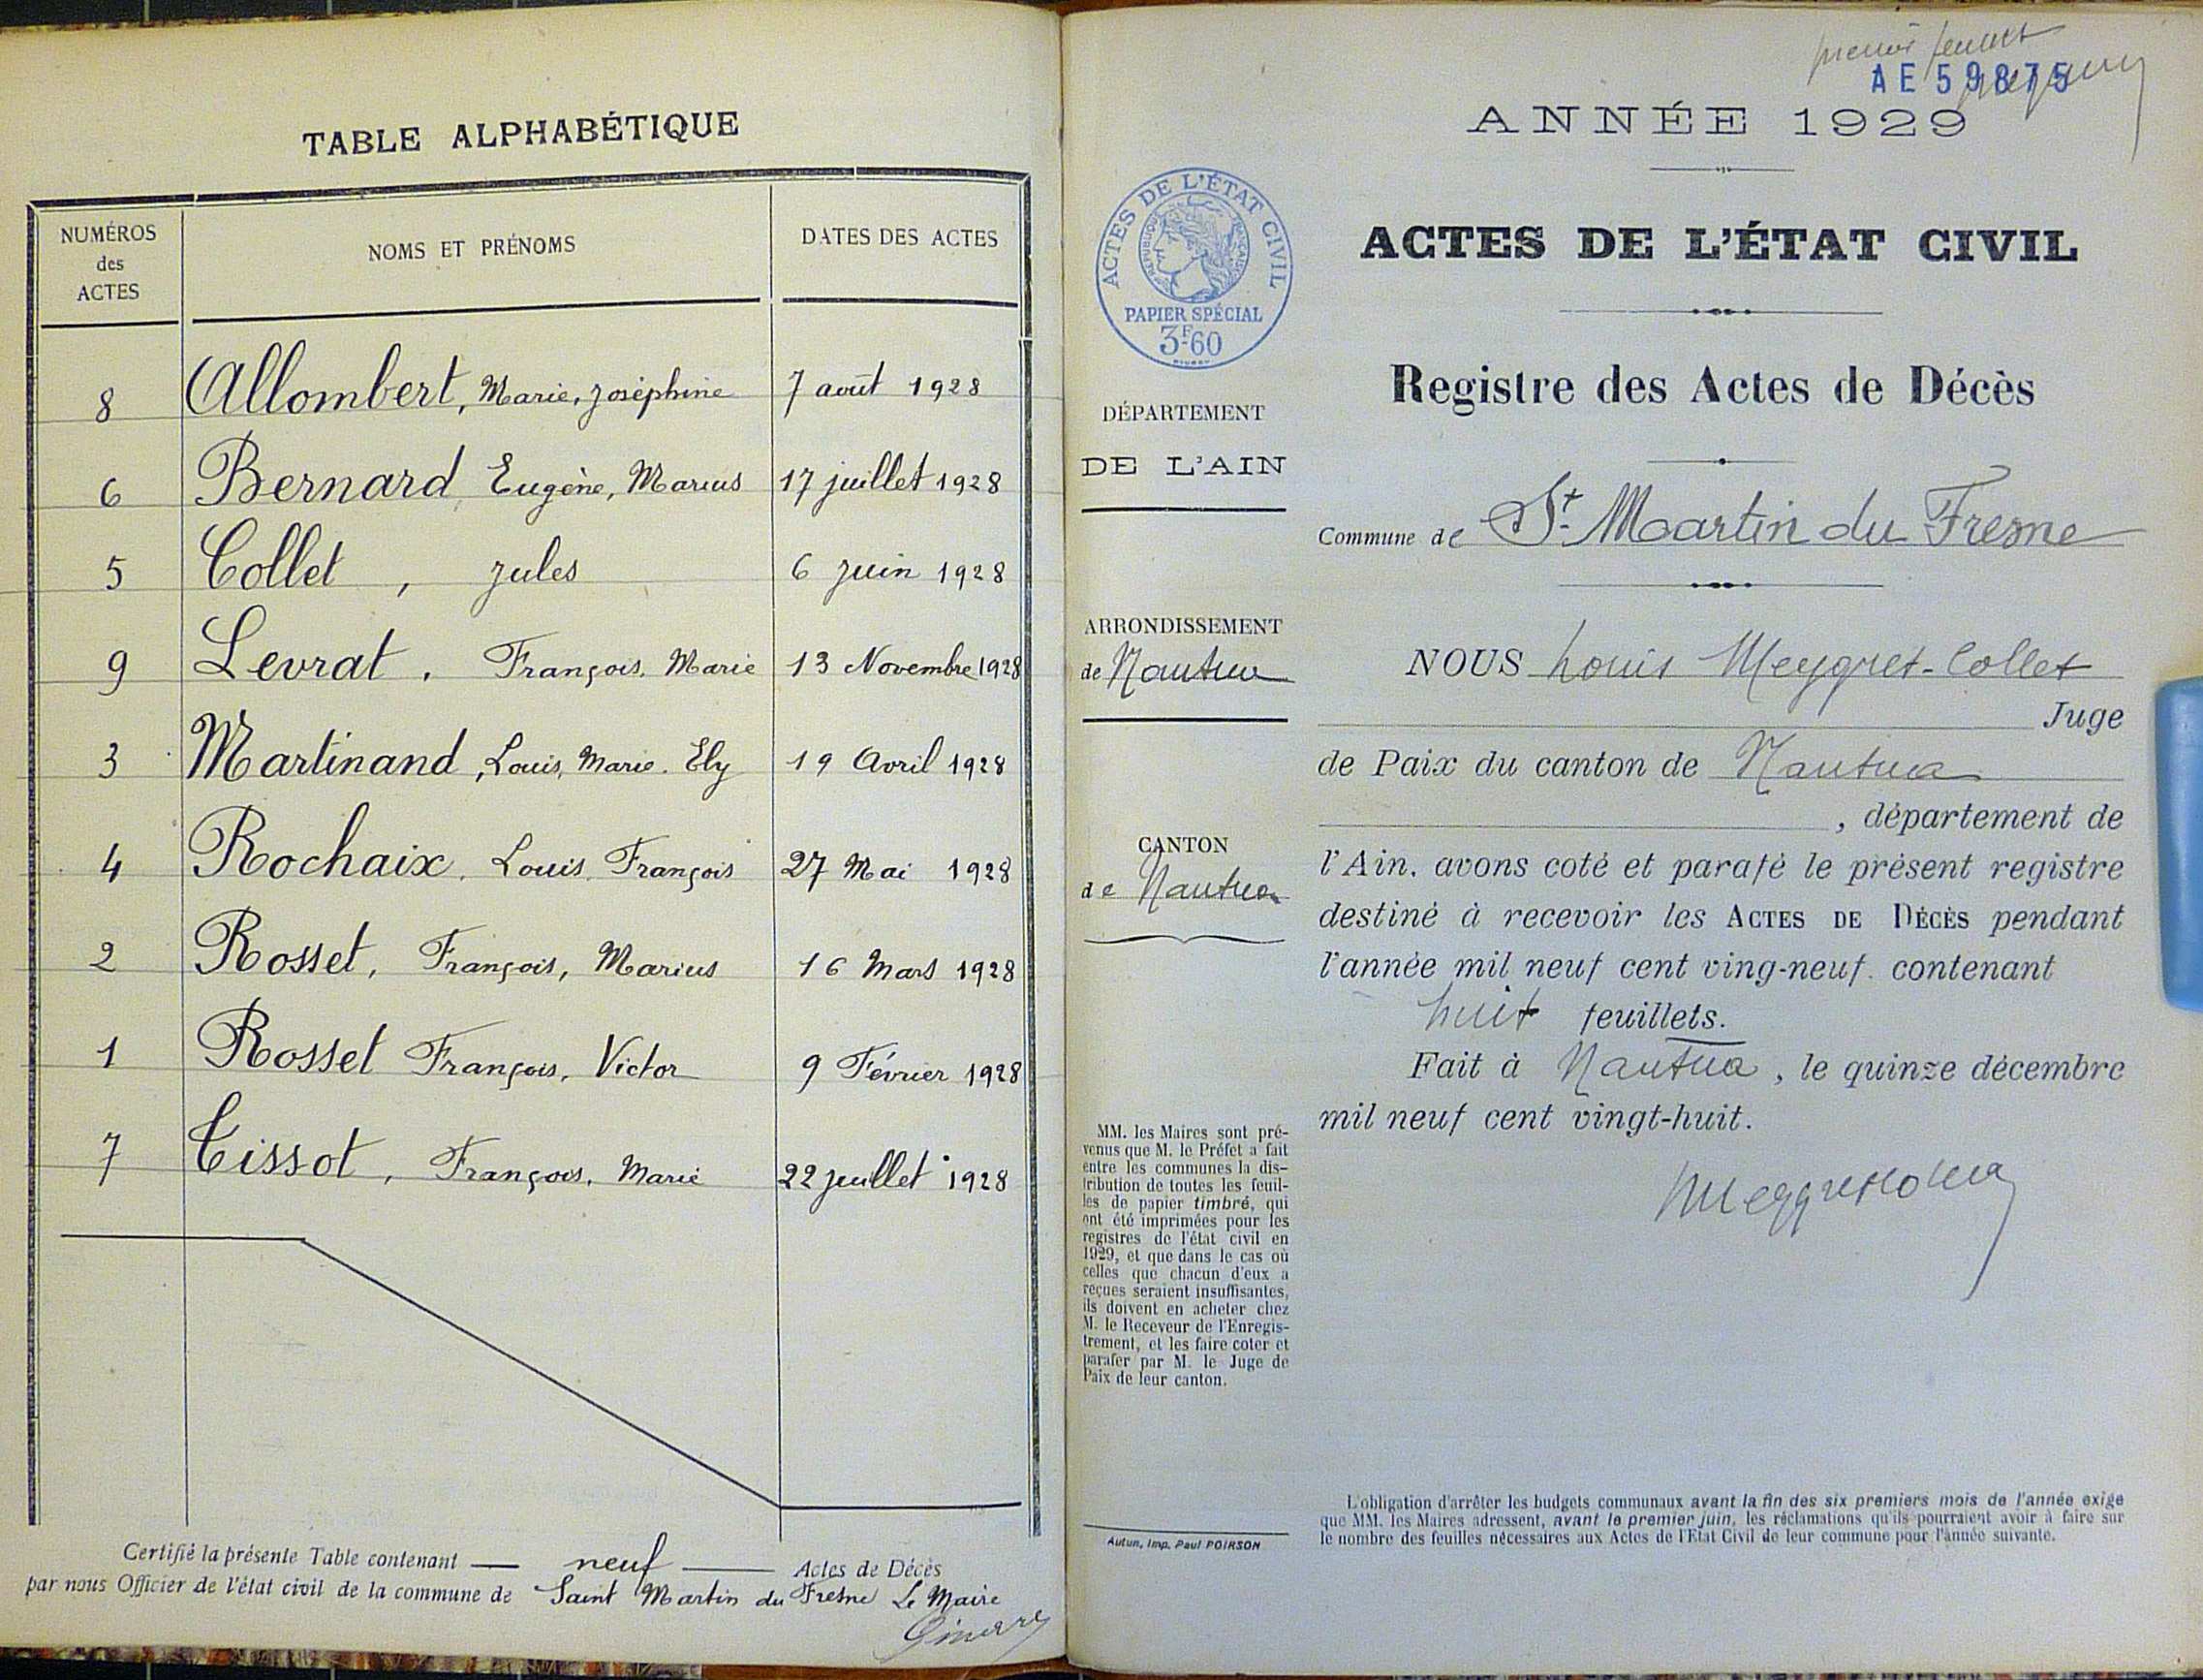 TABLE ALPHABÉTIQUE
NUMÉROS des ACTES
NOMS ET PRÉNOMS
DATES DES ACTES
8 Allombert, Marie, Joséphine 7 août 1928
6 Bernard, Eugène, Marius 17 juillet 1928
5 Collet, Jules 6 juin 1928
9 Levrat, François, Marie 13 Novembre 1928
3 Martinand, Louis, Marie, Ely 19 Avril 1928
4 Rochaix, Louis, François 27 Mai 1928
2 Rosset, François, Marius 16 Mars 1928
1 Rosset François, Victor 9 Février 1928
7 Tissot, François, Marie 22 juillet 1928
Certifié la présente Table contenant — neuf — Actes de Décès
par nous Officier de l'état civil de la commune de Saint Martin du Fresne Le Maire
premier feuillet
AE 59875
ANNÉE 1929
ACTES DE L'ÉTAT CIVIL
RÉPUBLIQUE FRANÇAISE
PAPIER SPÉCIAL
3F.60
DÉPARTEMENT
DE L'AIN
ARRONDISSEMENT
de Nantua
CANTON
de Nantua
MM. les Maires sont pré-
venus que M. le Préfet a fait
entre les communes la dis-
tribution de toutes les feuil-
les de papier timbré, qui
ont été imprimées pour les
registres de l'état civil en
1929, et que dans le cas où
celles que chacun d'eux a
reçues seraient insuffisantes,
ils doivent en acheter chez
M. le Receveur de l'Enregis-
trement, et les faire coter et
parafer par M. le Juge de
Paix de leur canton.
Autun, Imp. Paul POIRSON
ACTES DE L'ÉTAT CIVIL
Registre des Actes de Décès
Commune de St. Martin du Fresne
NOUS Louis Meygret-Collet
Juge
de Paix du canton de Nantua
, département de
l'Ain, avons coté et parafé le présent registre
destiné à recevoir les ACTES DE DÉCÈS pendant
l'année mil neuf cent ving-neuf. contenant
huit feuillets.
Fait à Nantua, le quinze décembre
mil neuf cent vingt-huit.
L'obligation d'arrêter les budgets communaux avant la fin des six premiers mois de l'année exige
que MM. les Maires adressent, avant le premier juin, les réclamations qu'ils pourraient avoir à faire sur
le nombre des feuilles nécessaires aux Actes de l'Etat Civil de leur commune pour l'année suivante.